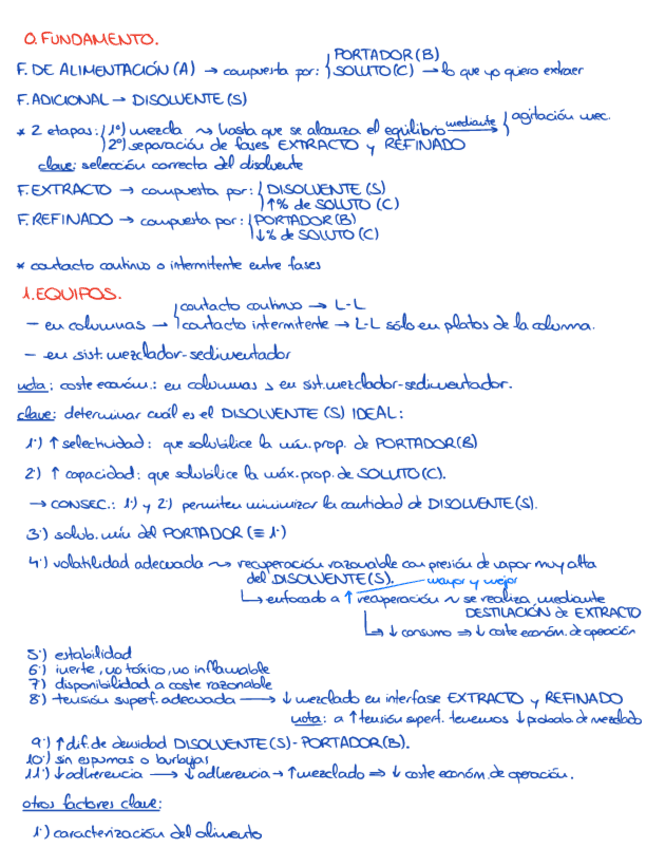 0. FUNDAMENTO.
F. DE ALIMENTACIÓN (A) → compuesta por: { PORTADOR (B)
SOLUTO (C) → lo que yo quiero extraer
F. ADICIONAL → DISOLVENTE (S)
* 2 etapas: { 1º) mezcla ⤳ hasta que se alcanza el equilibrio mediante → { agitación mec.
2º) separación de fases EXTRACTO y REFINADO
clave: selección correcta del disolvente
F. EXTRACTO → compuesta por: { DISOLVENTE (S)
↑% de SOLUTO (C)
F. REFINADO → compuesta por: { PORTADOR (B)
↓% de SOLUTO (C)
* contacto continuo o intermitente entre fases
1. EQUIPOS.
- en columnas → { contacto continuo → L-L
contacto intermitente → L-L sólo en platos de la columna.
- en sist. mezclador-sedimentador
nota: coste económ.: en columnas > en sist. mezclador-sedimentador.
clave: determinar cuál es el DISOLVENTE (S) IDEAL:
1·) ↑ selectividad: que solubilice la mín. prop. de PORTADOR (B)
2·) ↑ capacidad: que solubilice la máx. prop. de SOLUTO (C).
→ CONSEC.: 1·) y 2·) permiten minimizar la cantidad de DISOLVENTE (S).
3·) solub. mín del PORTADOR (≡ 1·)
4·) volatilidad adecuada ⤳ recuperación razonable con presión de vapor muy alta
del DISOLVENTE (S). mayor y mejor
↳ enfocado a ↑ recuperación ~ se realiza mediante
DESTILACIÓN de EXTRACTO
↳ ↓ consumo ⇒ ↓ coste económ. de operación
5·) estabilidad
6·) inerte, no tóxico, no inflamable
7) disponibilidad a coste razonable
8·) tensión superf. adecuada → ↓ mezclado en interfase EXTRACTO y REFINADO
nota: a ↑ tensión superf. tenemos ↓ probab. de mezclado
9·) ↑ dif. de densidad DISOLVENTE (S) - PORTADOR (B).
10·) sin espumas o burbujas
11·) ↓ adherencia → ↓ adherencia → ↑ mezclado ⇒ ↓ coste económ. de operación.
otros factores clave:
1·) caracterización del alimento